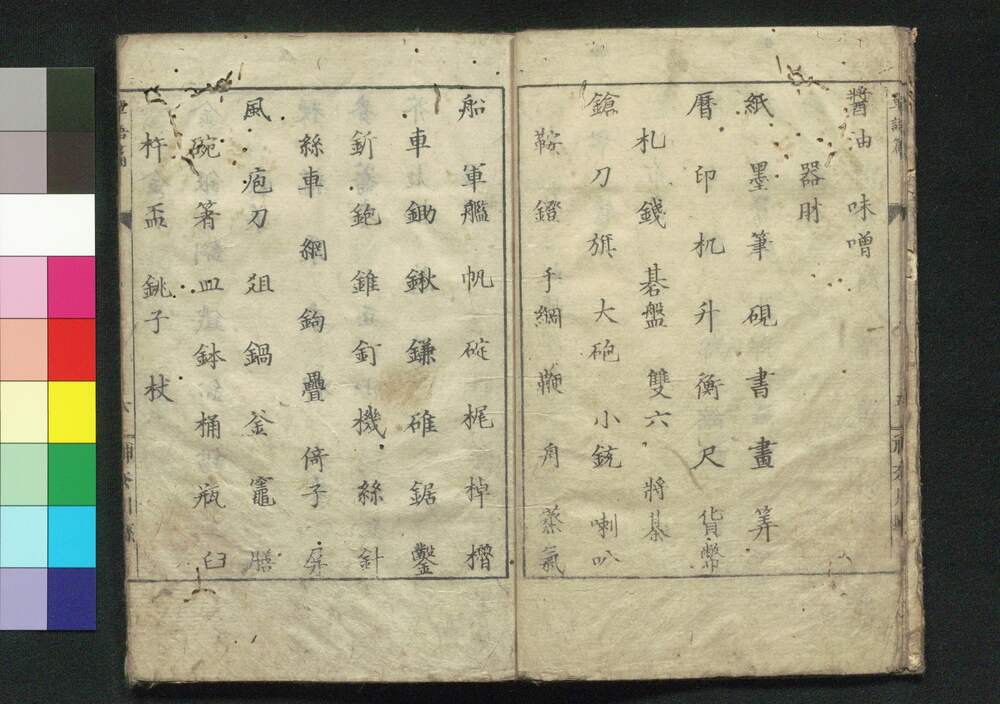 醬油 味噌
器財
紙 墨 筆 硯 書 畫 筭
暦 印 机 升 衡 尺 貨幣
札 錢 碁盤 雙六 將棊
鎗 刀 旂 大砲 小銃 喇叭
鞍 鐙 手綱 鞭 舟 蒸氣
船 軍艦 帆 碇 梶 棹 櫓
車 鋤 鍬 鎌 碓 鋸 鑿
釿 鉋 錐 釘 機 絲 針
絲車 網 鉤 疊 倚子 屏
風 庖刀 俎 鍋 釜 竈 膳
碗 箸 皿 鉢 桶 瓶 臼
杵 盃 銚子 杖